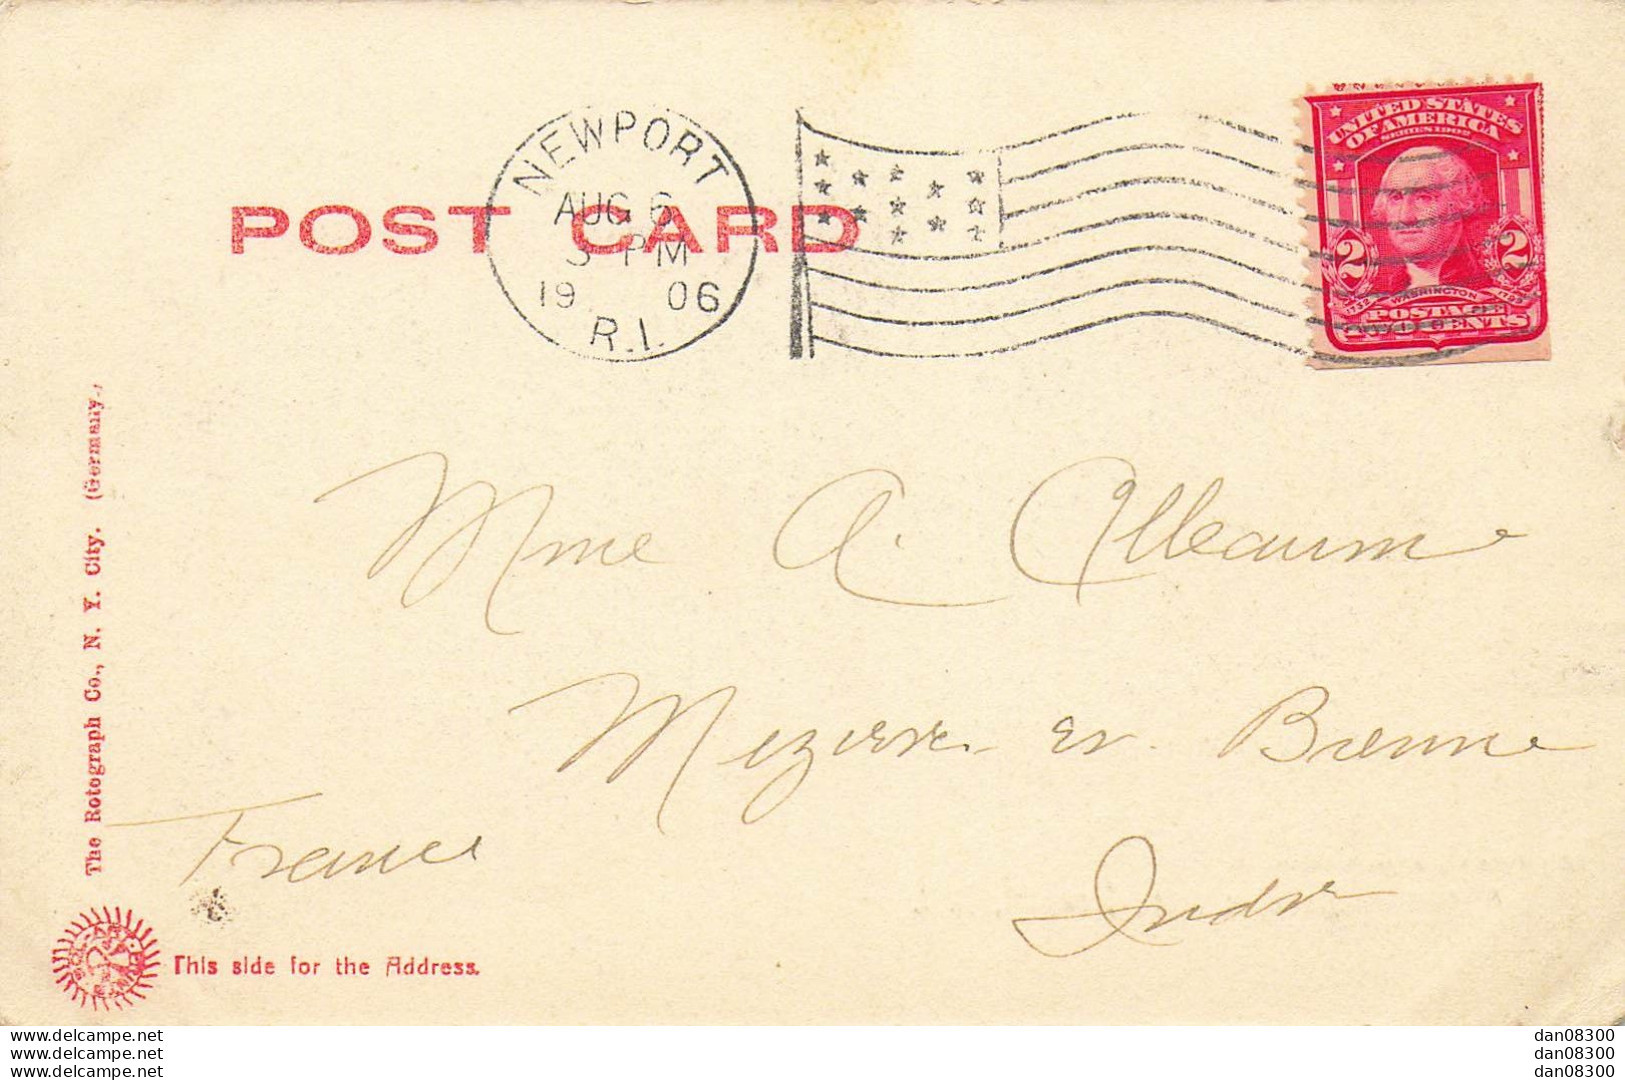 UNITED STATES
OF AMERICA
SERIES 1902
2 2
1732 WASHINGTON 1799
POSTAGE
TWO CENTS
NEWPORT
AUG 6
PM
19 06
R.I.
POST CARD
Mme A. Alleaume
Mezieres en Brenne
Indre
France
The Rotograph Co., N. Y. City. (Germany.)
This side for the Address.
www.delcampe.net
www.delcampe.net
www.delcampe.net
dan08300
dan08300
dan08300